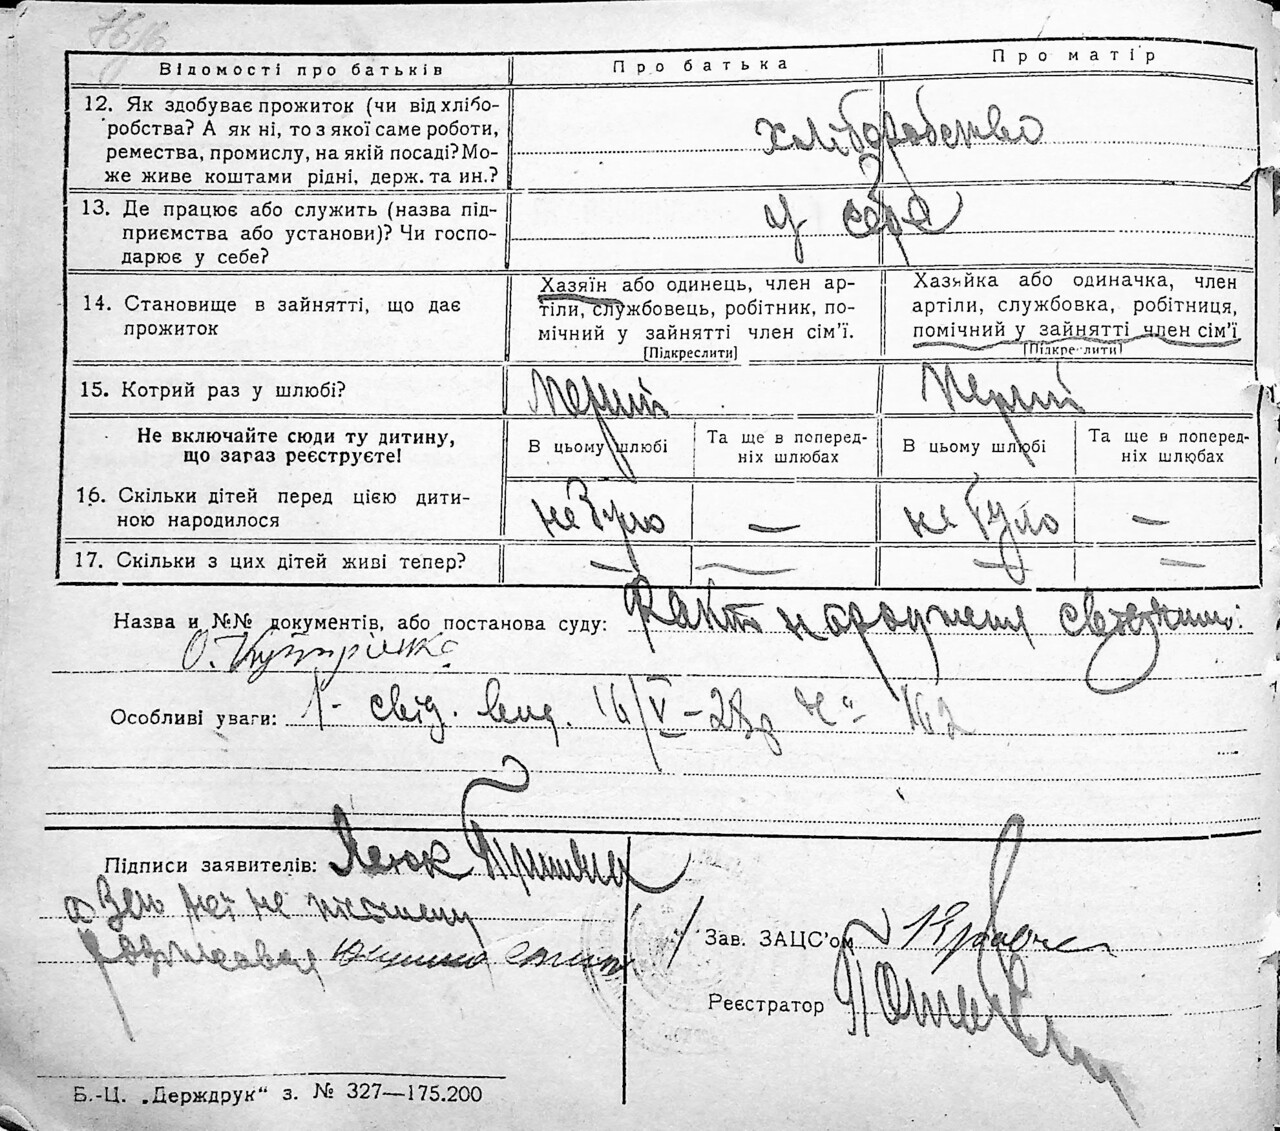 Відомості про батьків
Про батька
Про матір
12. Як здобуває прожиток (чи від хлібо-
робства? А як ні, то з якої саме роботи,
ремества, промислу, на якій посаді? Мо-
же живе коштами рідні, держ. та ин.?
хліборобство
13. Де працює або служить (назва під-
приємства або установи)? Чи госпо-
дарює у себе?
у себе
14. Становище в зайнятті, що дає
прожиток
Хазяїн або одинець, член ар-
тіли, службовець, робітник, по-
мічний у зайнятті член сім'ї.
[Підкреслити]
Хазяйка або одиначка, член
артіли, службовка, робітниця,
помічний у зайнятті член сім'ї
[Підкреслити]
15. Котрий раз у шлюбі?
Перший
Перший
Не включайте сюди ту дитину,
що загаз реєструєте!
В цьому шлюбі
Та ще в поперед-
ніх шлюбах
В цьому шлюбі
Та ще в поперед-
ніх шлюбах
16. Скільки дітей перед цією дити-
ною народилося
не було
—
не було
—
17. Скільки з цих дітей живі тепер?
—
—
—
—
Назва и №№ документів, або постанова суду: Факт народження
О.
Особливі уваги: свід. вид. V–28р 162
Підписи заявителів:
не
Зав. ЗАЦС'ом
Реєстратор
Б.-Ц. „Держдрук“ з. № 327—175.200